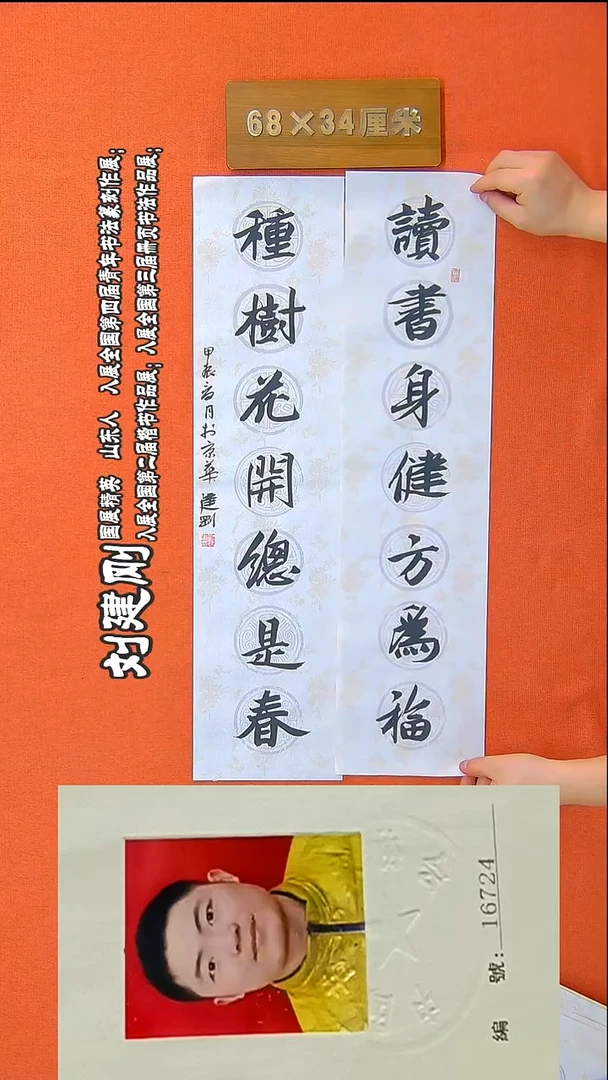 68×34厘米
讀書身健方為福
種樹花開總是春
甲辰 月於京華 建剛
刘建刚
国展精英 山东人 入展全国第四届青年书法篆刻作展;
入展全国第二届楷书作品展; 入展全国第三届册页书法作品展;
編號: 16724